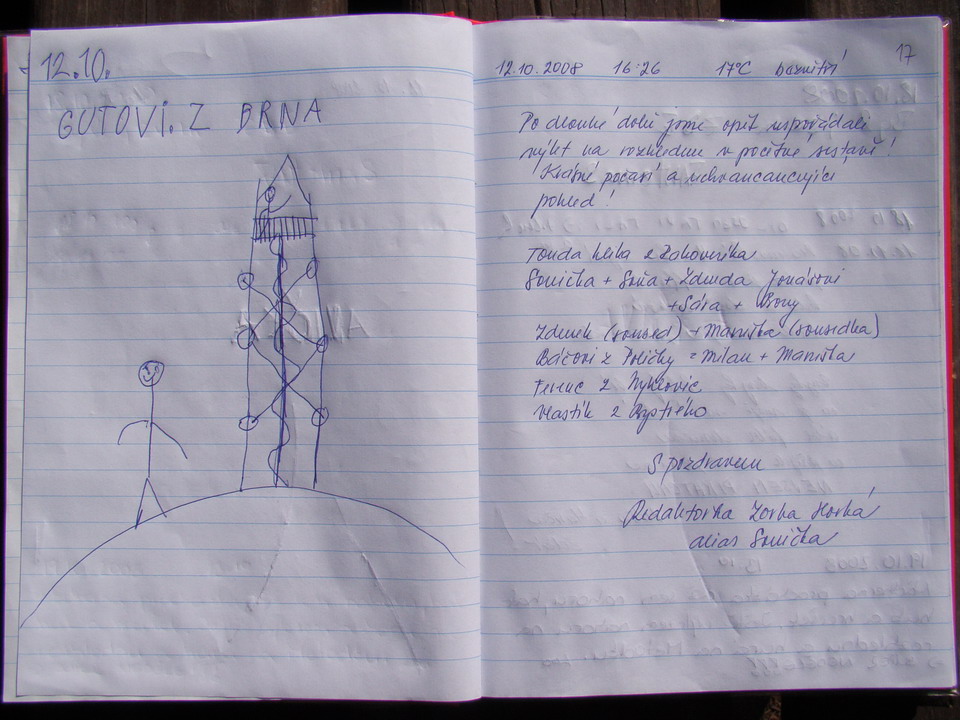 12.10.
GUTOVI. Z BRNA
17
12.10.2008 16:26 17°C bezvětří
Po dlouhé době jsme opět uspořádali
výlet na rozhlednu v početné sestavě!
Krásné počasí a
pohled!
Tonda z
Sonička + Soňa + Zdenda Jonášovi
+ Sára +
Zdeněk (soused) + Maruška (sousedka)
z Poličky = Milan + Maruška
Ferenc z
Vlastík z Bystrého
S pozdravem
Redaktorka Zorka Horká
alias Sonička